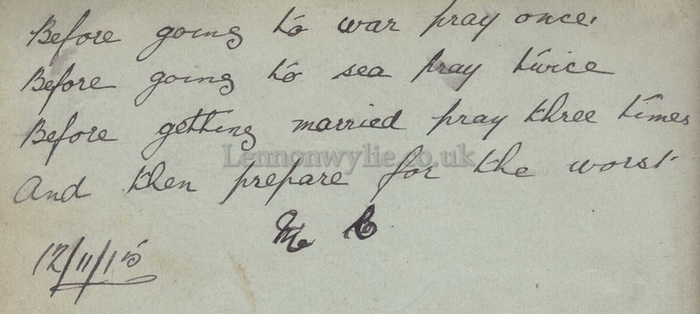 Before going to war pray once.
Before going to sea pray twice
Before getting married pray three times
Lennonwylie.co.uk
And then prepare for the worst.
M C
12/11/15